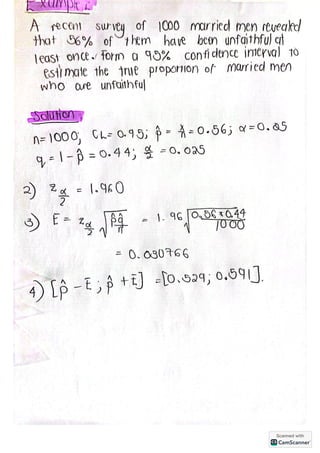 Example 2
A recent survey of 1000 married men revealed
that 56% of them have been unfaithful at
least once. Form a 95% confidence interval to
estimate the true proportion of married men
who are unfaithful
Solution:
n=1000; CL=0.95; p̂ = x/n = 0.56; α=0.05
q = 1-p̂ = 0.44; α/2 = 0.025
2) z α/2 = 1.960
3) E = z α/2 √(p̂q̂/n) = 1.96 √(0.56×0.44/1000)
= 0.030766
4) [p̂ - E ; p̂ + E] = [0.529; 0.591].
Scanned with
CamScanner